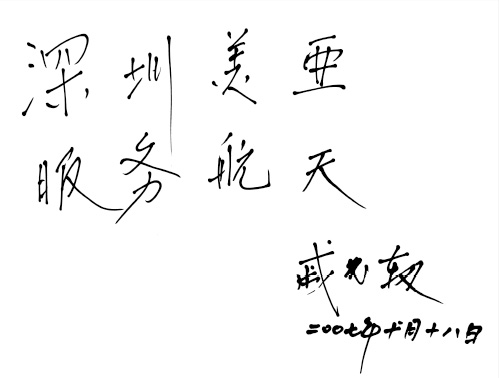 深圳美亚
服务航天
戚发轫
二00七年十月十八日